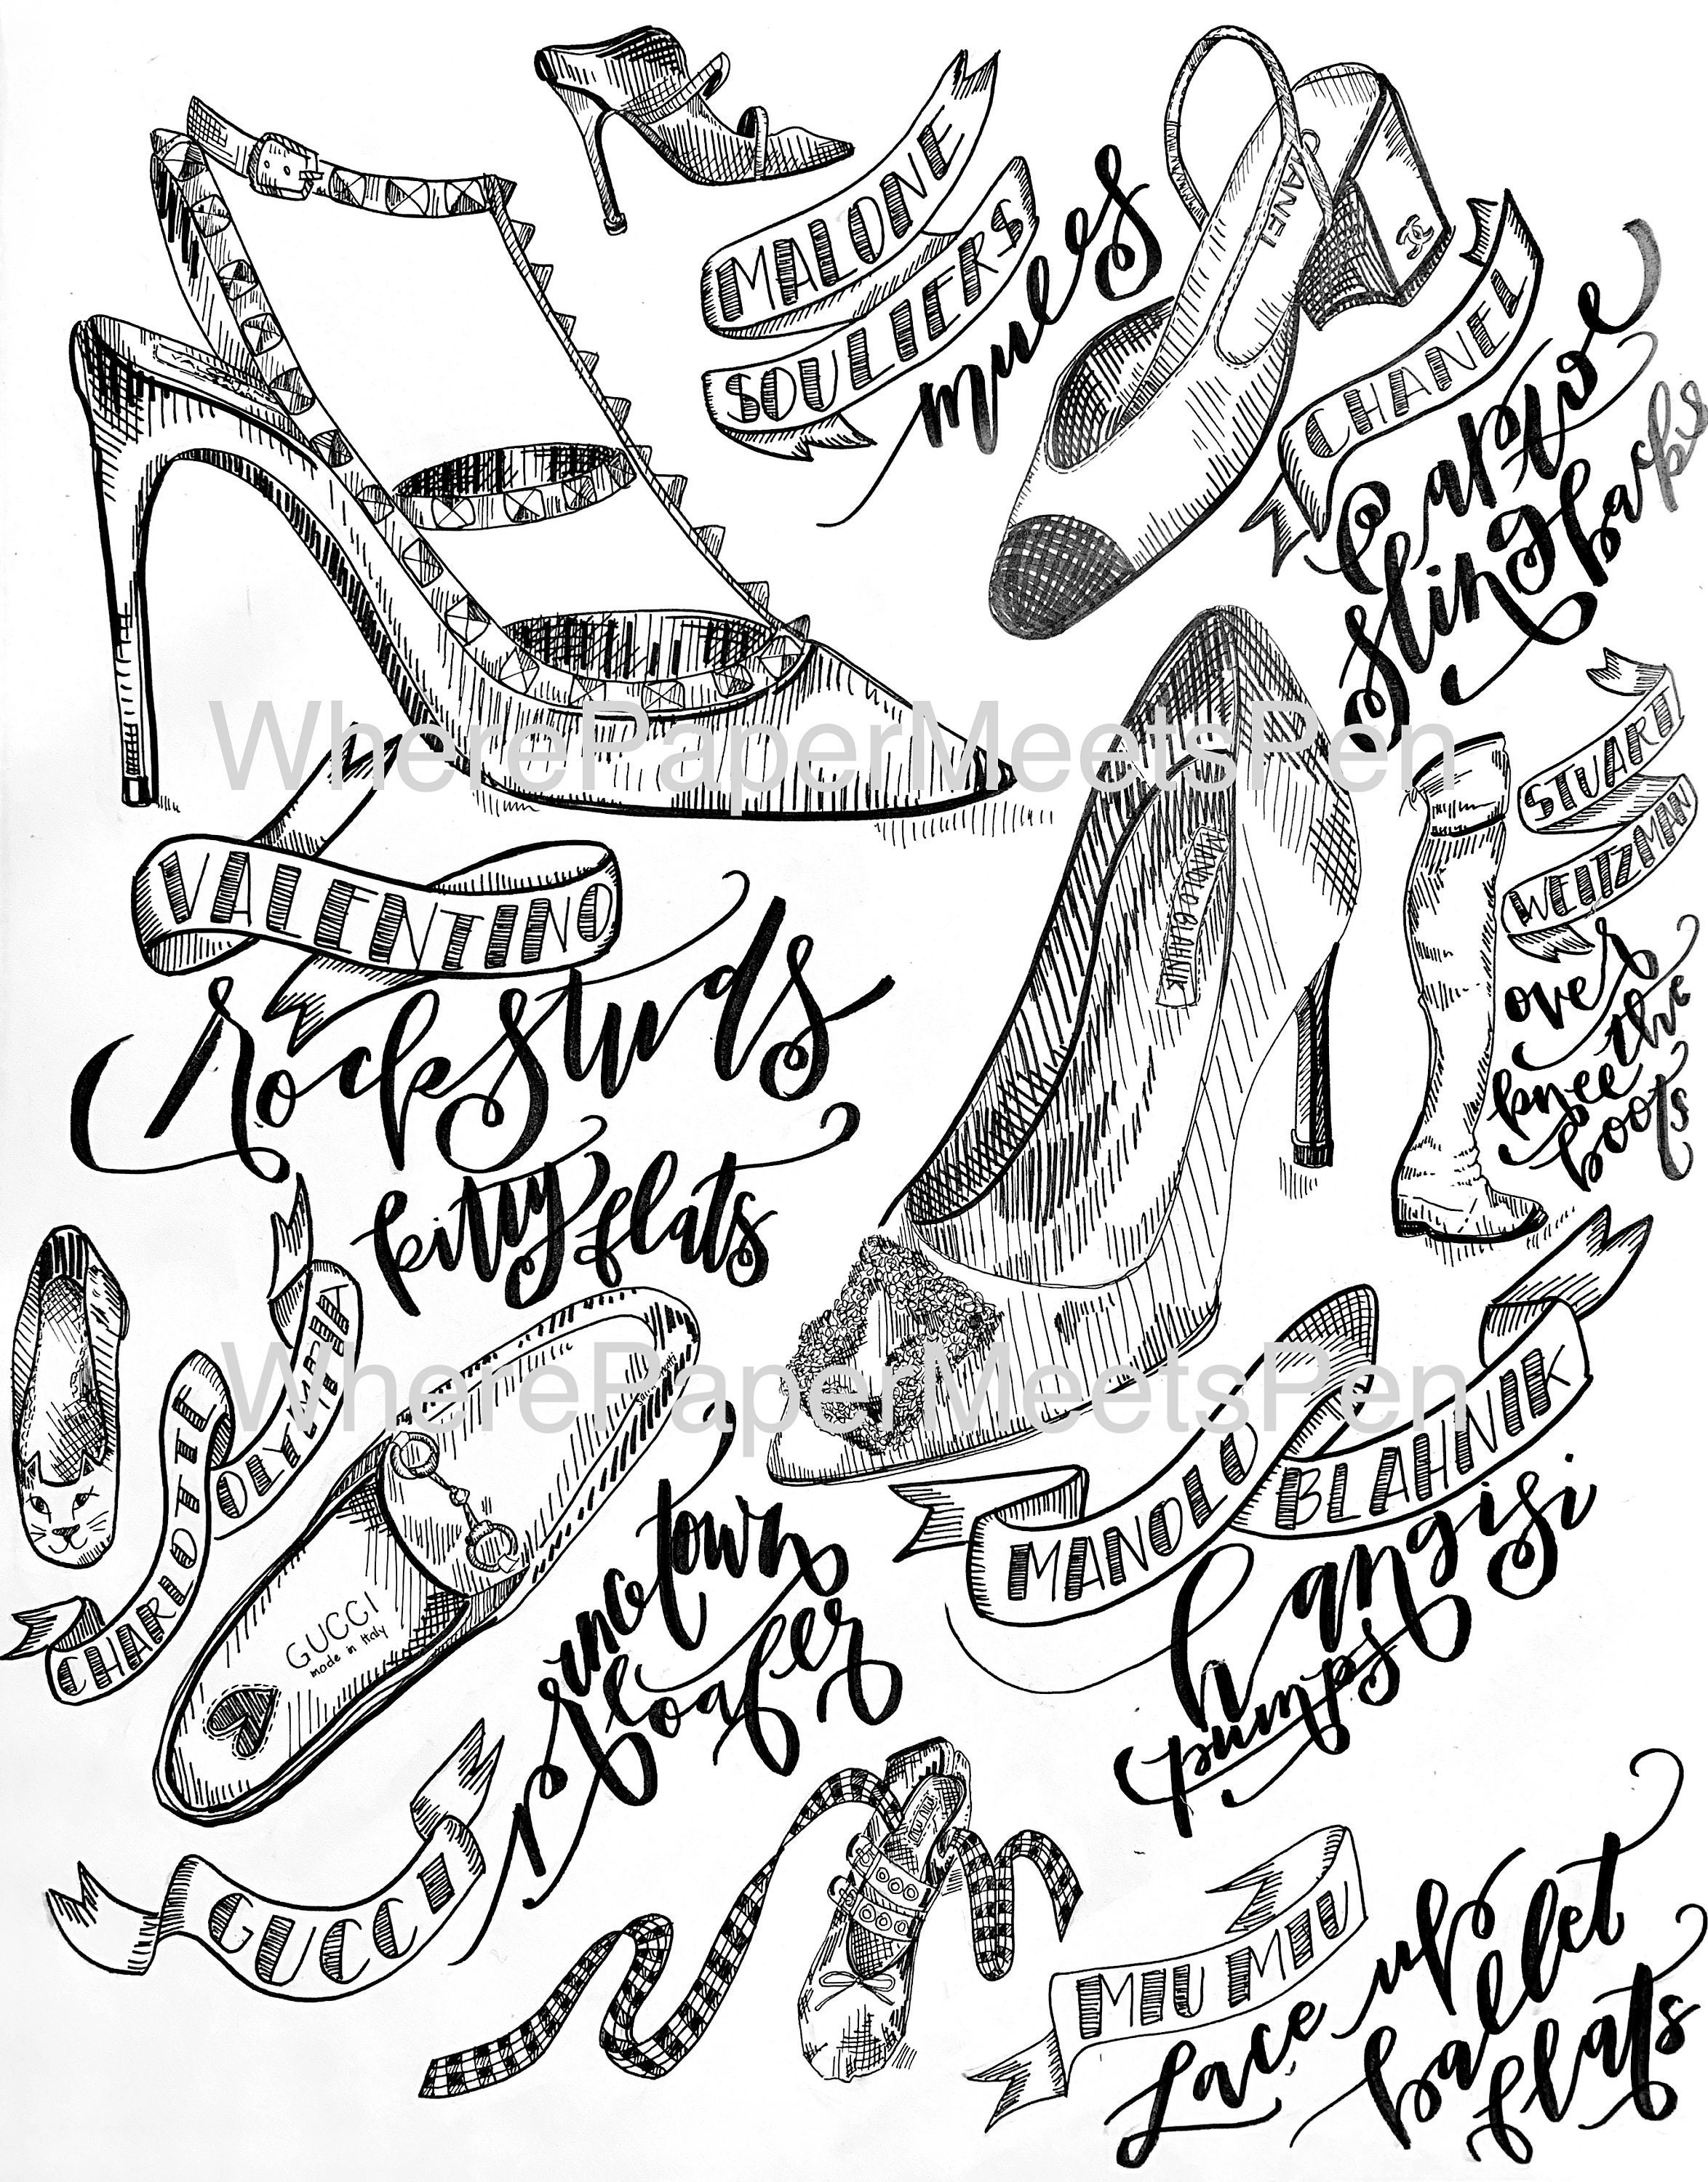 MALONE
SOULIERS
mules
CHANEL
CHANEL
Cap toe
slingbacks
STUART
WEITZMAN
over
the
knee
boots
WherePaperMeetsPen
VALENTINO
rockstuds
MANOLO BLAHNIK
kitty flats
CHARLOTTE
OLYMPIA
WherePaperMeetsPen
MANOLO
BLAHNIK
hangisi
pumps
GUCCI
made in Italy
princetown
loafer
GUCCI
Miu Miu
MIU MIU
Lace up
ballet
flats